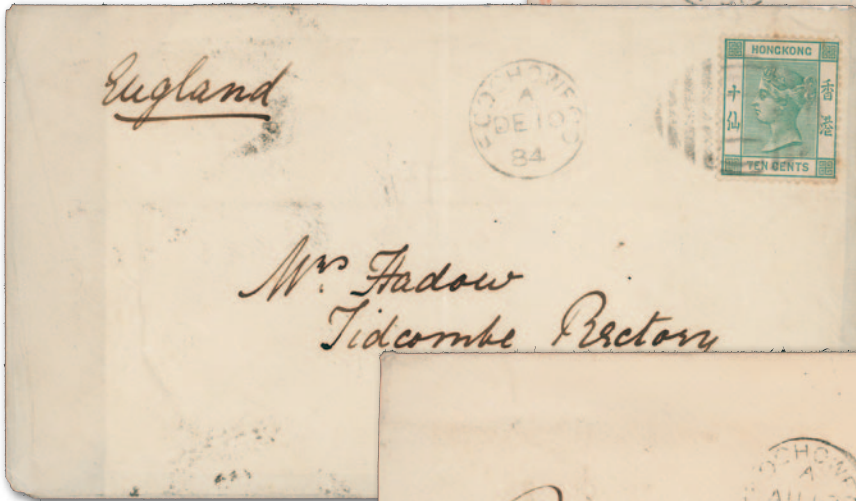 England
FOOCHOWFOO
A
DE 10
84
HONGKONG
十仙
香港
TEN CENTS
Mrs Hadow
Tidcombe Rectory
A